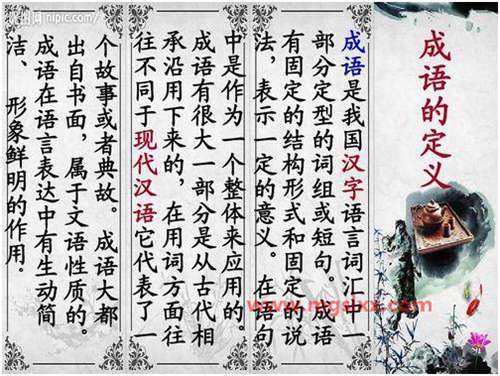 成语的定义
成语是我国汉字语言词汇中一
部分定型的词组或短句。成语
有固定的结构形式和固定的说
法，表示一定的意义。在语句
中是作为一个整体来应用的。
成语有很大一部分是从古代相
承沿用下来的，在用词方面往
往不同于现代汉语它代表了一
个故事或者典故。 成语大都
出自书面，属于文语性质的。
成语在语言表达中有生动简
洁、 形象鲜明的作用。
nipic.com